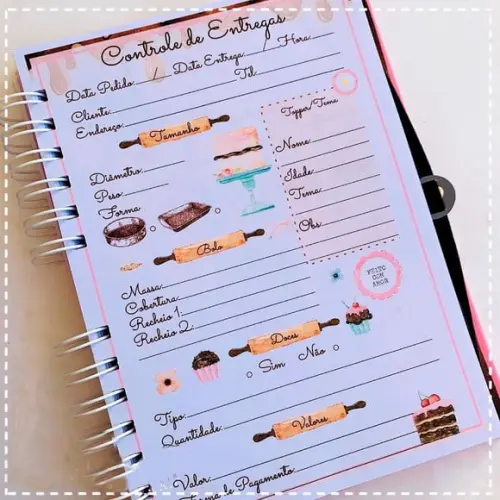 Controle de Entregas
Data Pedido: / Data Entrega: / Hora:
Cliente: Tel:
Endereço:
Tamanho
Topper/Tema
Diâmetro:
Peso:
Forma
Nome:
Idade:
Tema:
Obs:
Bolo
Massa:
Cobertura:
Recheio 1:
Recheio 2:
FEITO
COM
AMOR
Doces
Sim Não
Tipo:
Quantidade:
Valores
Valor:
Forma de Pagamento: